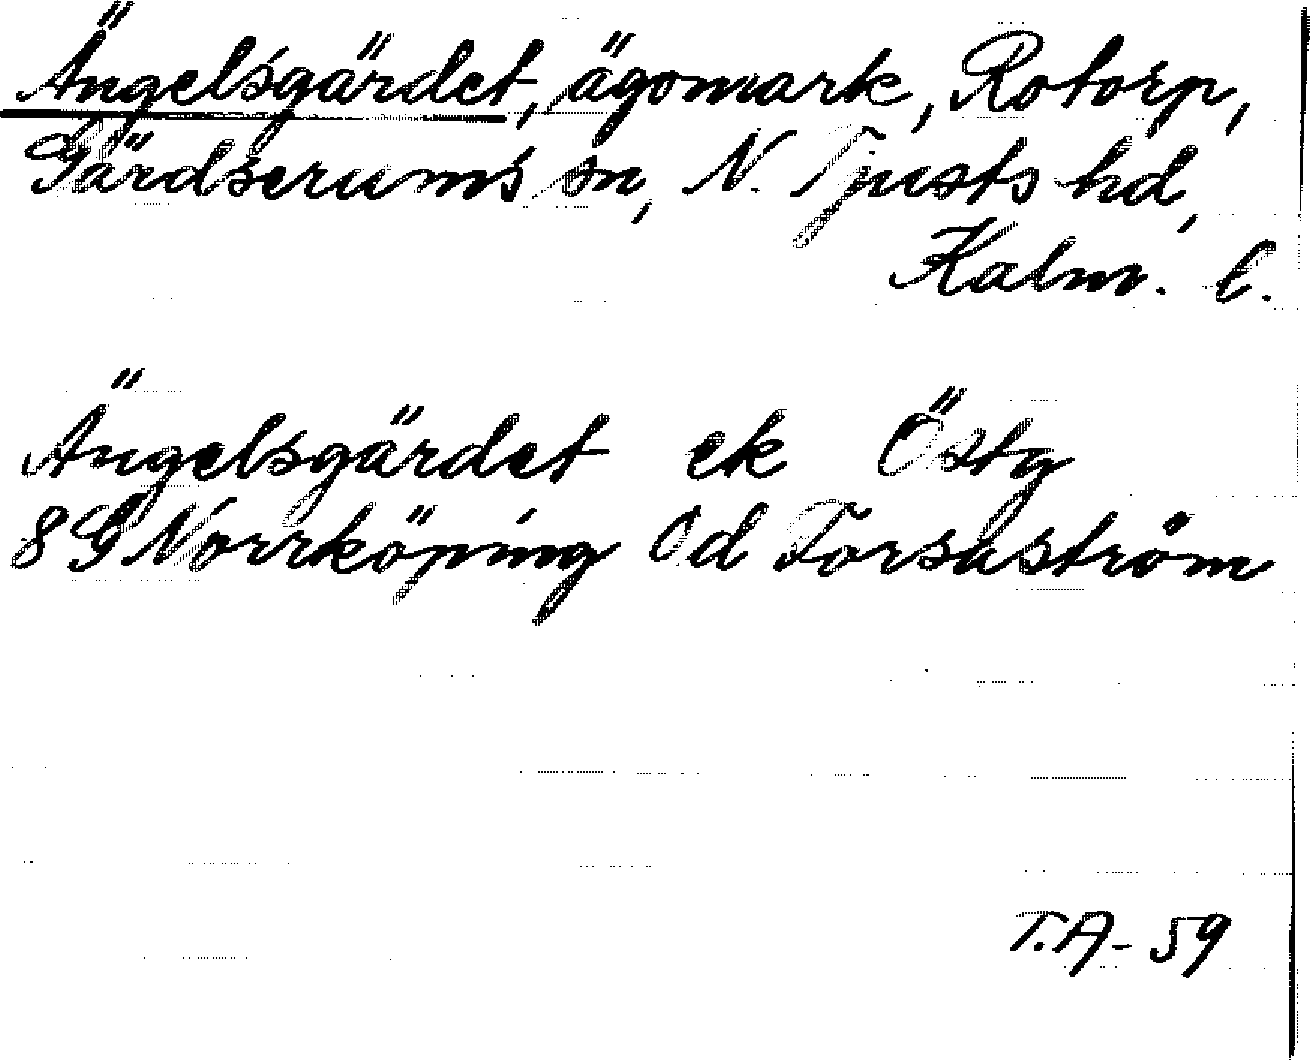 Ängelsgärdet, ägomark, Rotorp,
Gärdserums sn, N. Tjusts hd,
Kalm. l.
Ängelsgärdet ek Östg
8G Norrköping 0d Forsaström
T.A-59